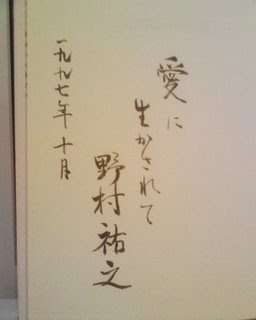 愛に
生かされて
野村祐之
一九九七年十月